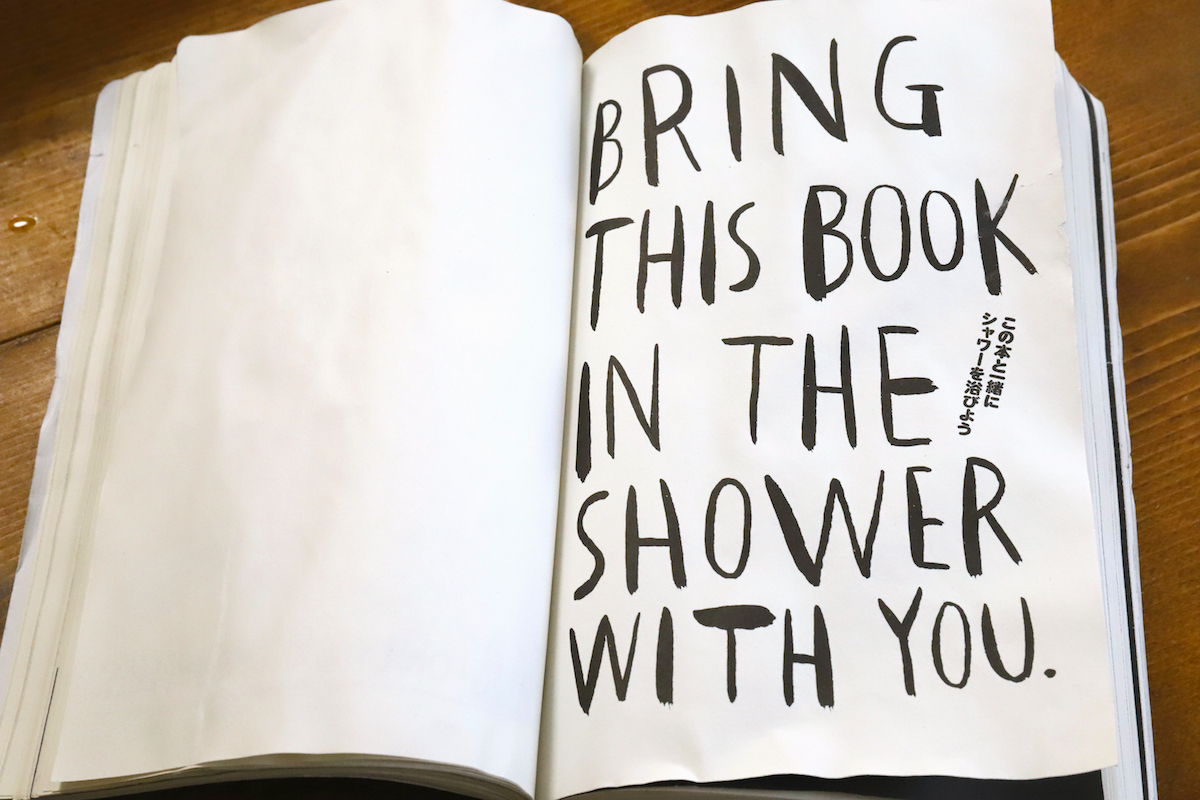 BRING
THIS BOOK
IN THE
SHOWER
WITH YOU.
この本と一緒に
シャワーを浴びよう